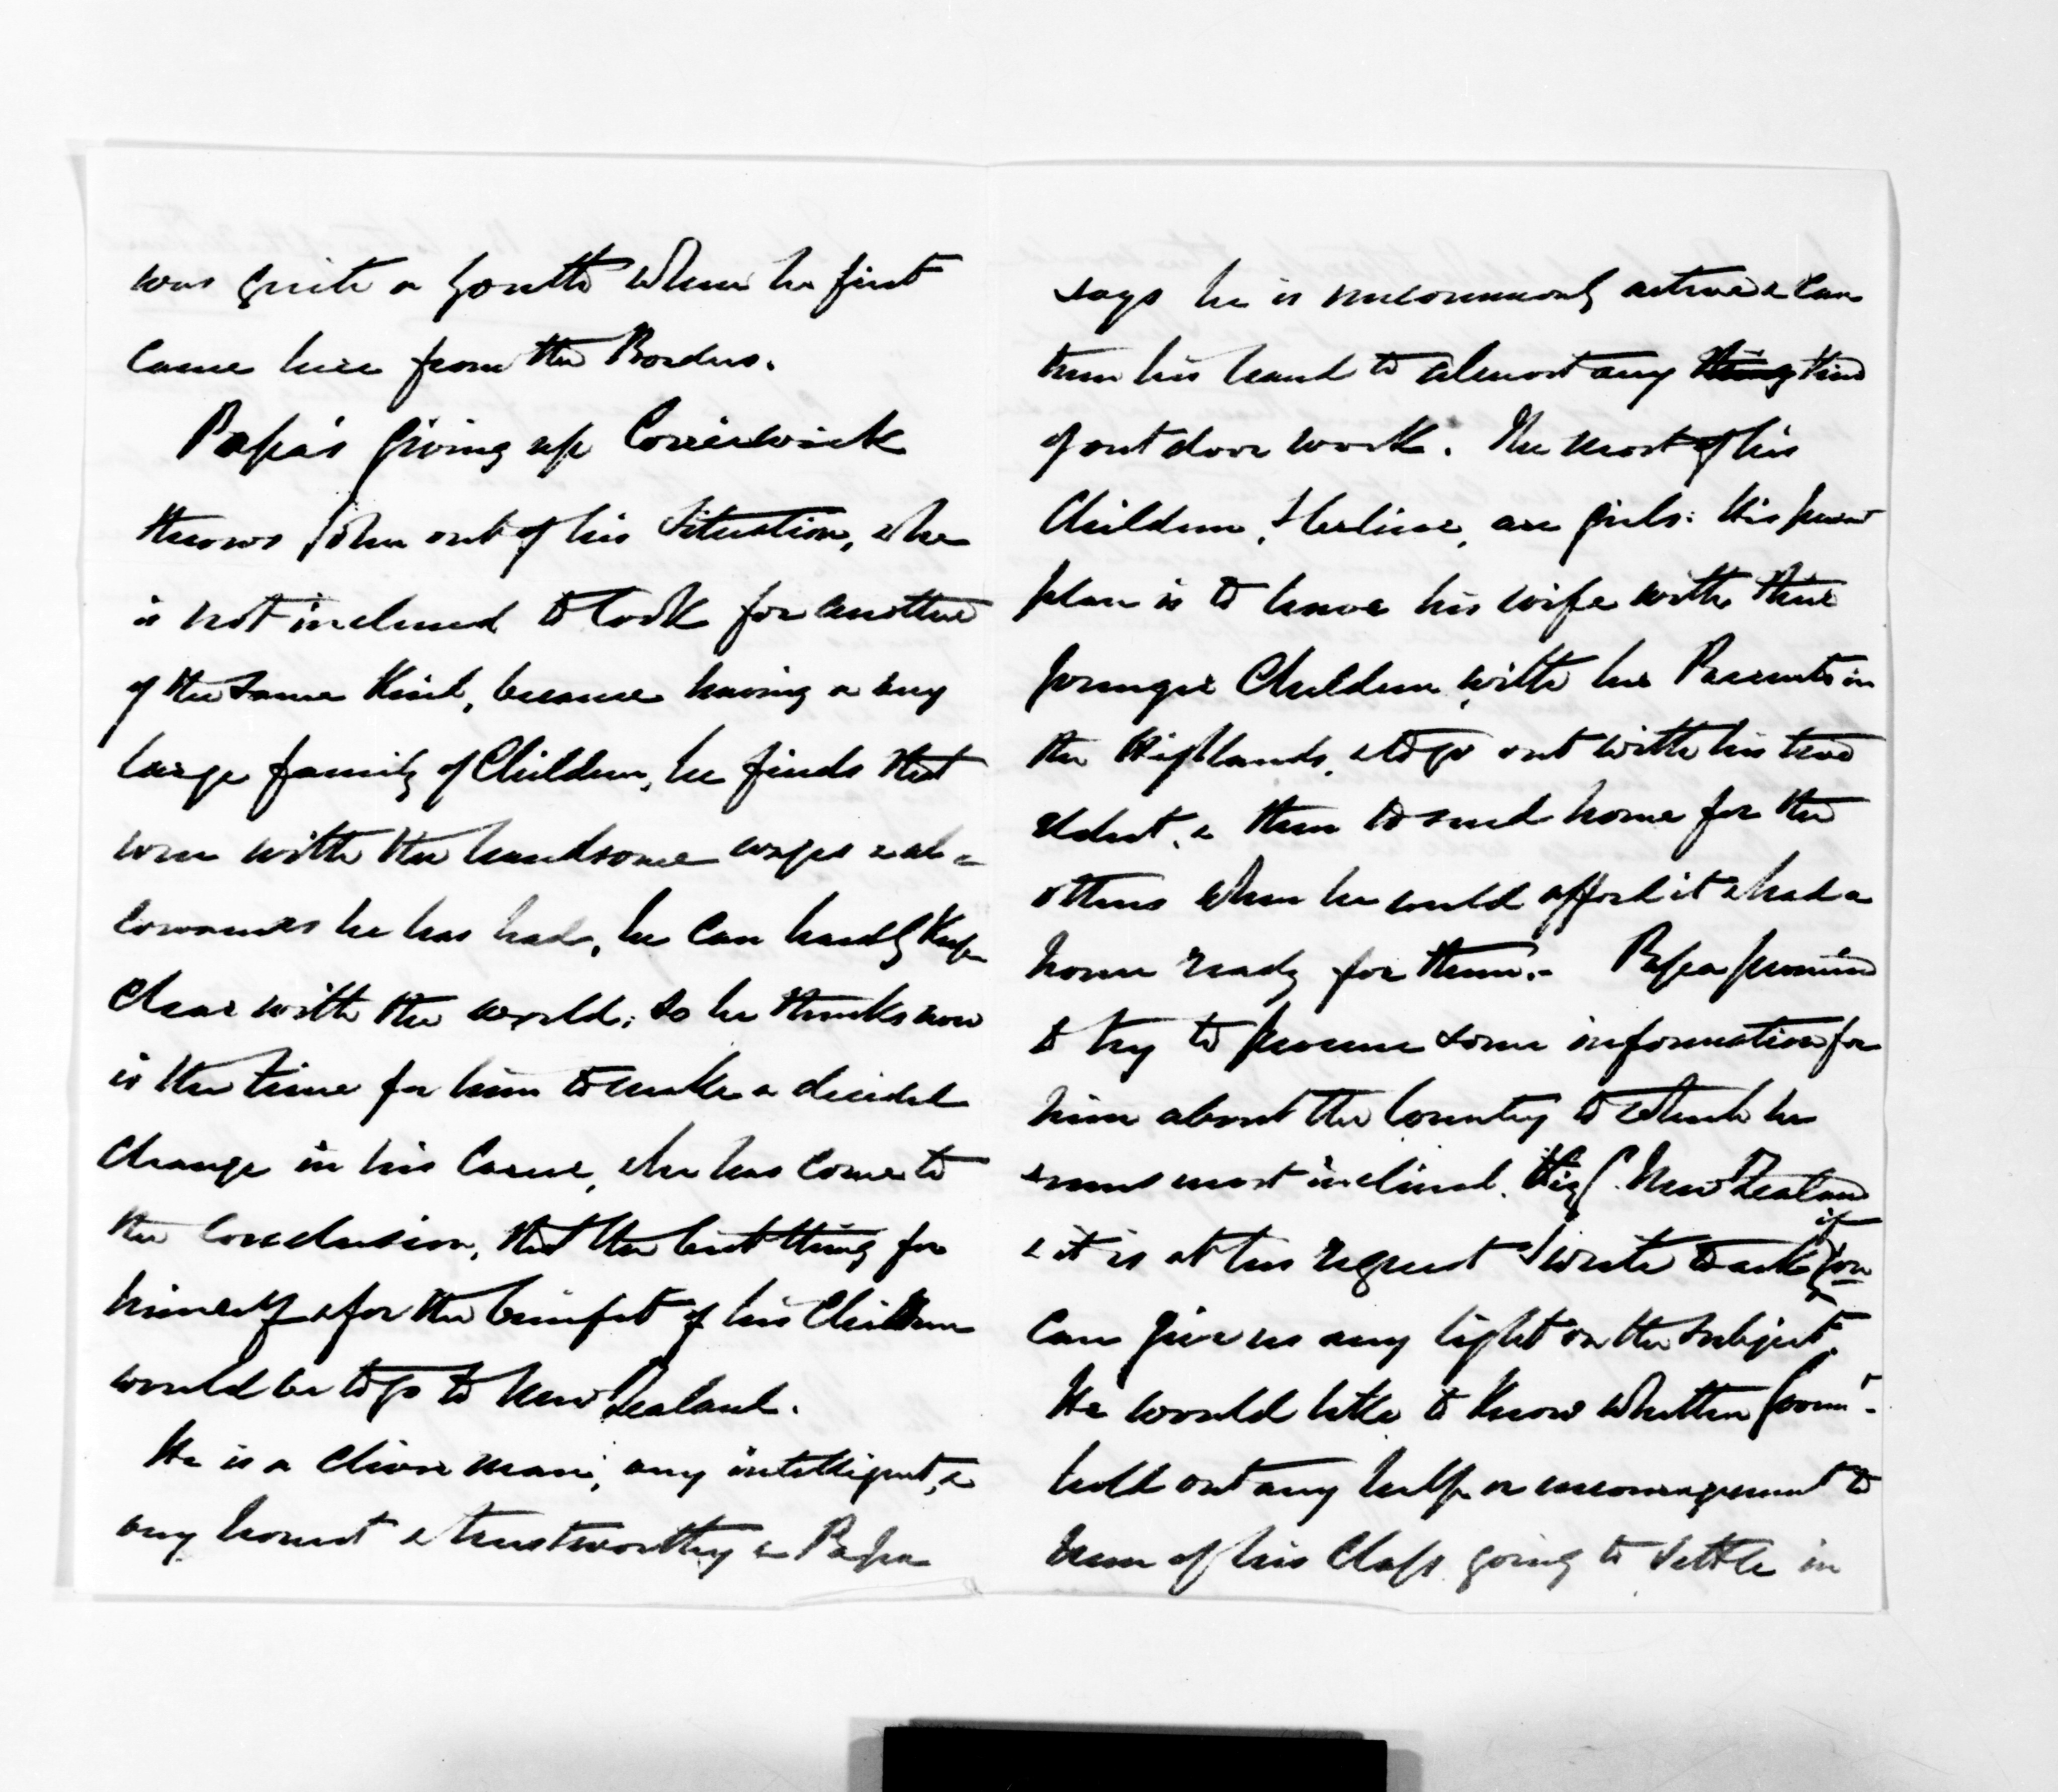 was quite a youth when he first
came here from the Borders.
Papa's giving up Corriewick
throws John out of his situation, & he
is not inclined to look for another
of the same kind, because having a very
large family of Children, he finds that
even with the handsome wages & al=
lowances he has had, he can hardly keep
clear with the world; so he thinks now
is the time for him to make a decided
change in his Career, & he has come to
the conclusion, that the best thing for
himself & for the benefit of his Children
would be to go to New Zealand.
He is a clever man; very intelligent, &
very honest & trustworthy & Papa
says he is uncommonly active & can
turn his hand to almost any thing kind
of out door work. The most of his
Children, I believe, are girls: His present
plan is to leave his wife with their
younger Children, with her Parents in
the Highlands, & to go out with his two
eldest, & then to send home for the
others when he could afford it & had a
home ready for them.- Papa promised
to try to procure some information for
him about the Country to which he
seems most inclined. Viz. New Zealand
& it is at his request I write to ask if you
can give us any light on the subject.
He would like to know whether Govmt.
hold out any help or encouragement to
men of his Class going to settle in